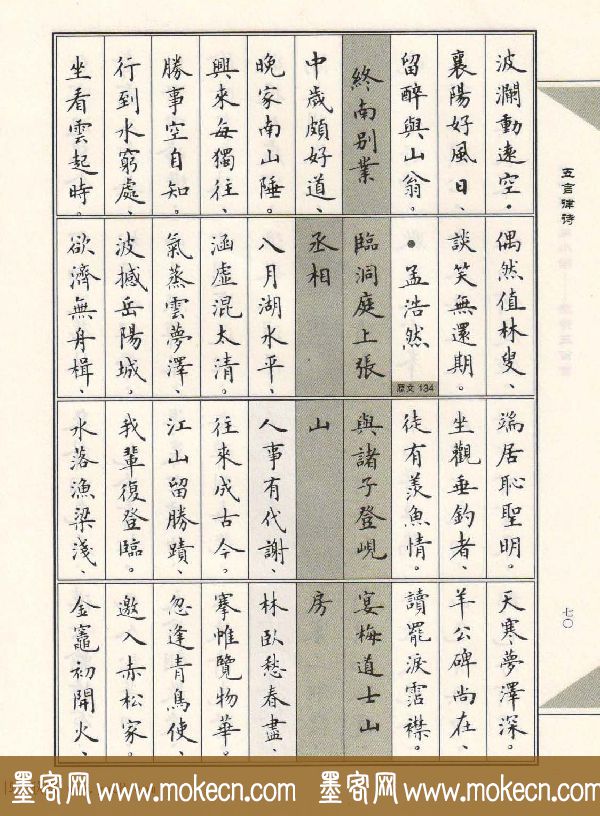 五言律诗
七〇
波瀾動遠空.
襄陽好風日、
留醉與山翁。
終南別業
中歲頗好道、
晚家南山陲。
興來每獨往、
勝事空自知。
行到水窮處、
坐看雲起時。
偶然值林叟、
談笑無還期。
•孟浩然
134
臨洞庭上張
丞相
八月湖水平、
涵虛混太清。
氣蒸雲夢澤、
波撼岳陽城。
欲濟無舟楫、
端居恥聖明。
坐觀垂釣者、
徒有羨魚情。
與諸子登峴
山
人事有代謝、
往來成古今。
江山留勝蹟、
我輩復登臨。
水落漁梁淺、
天寒夢澤深。
羊公碑尚在、
讀罷淚霑襟。
宴梅道士山
房
林臥愁春盡、
搴帷覽物華。
忽逢青鳥使、
邀入赤松家。
金竈初開火、
墨客网 www.mokecn.com 墨客网 www.mokecn.com